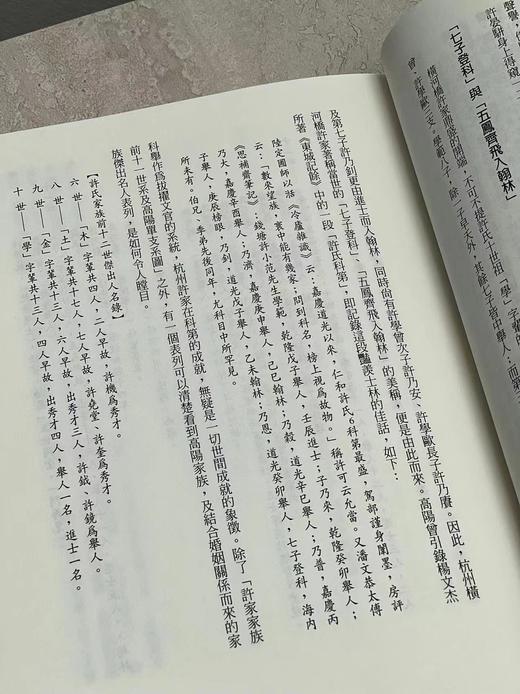 聲譽,
許晏駢身上得窺一
「七子登科」與「五鳳齊飛入翰林」
橫河橋許家鼎盛的開端,不可不提許氏十世祖「學」字輩的
曾、許學歐二支。學範八子,除一子早夭外,其餘七子皆中舉
及第七子許乃釗更由進士而入翰林,同時尚有許學曾次子許乃安、許學歐長子許乃賡。因此,杭州橫
河橋許家著稱當世的「七子登科」、「五鳳齊飛入翰林」的美稱,便是由此而來。高陽曾引錄楊文杰
所著《東城記餘》中的一段「許氏科第」,即記錄這段豔羨士林的佳話,如下:
陸定圃師以湉《冷廬雜識》云:嘉慶道光以來,仁和許氏6科第最盛,駕部謹身闈墨,房評
云:「數來望族,寰中能有幾家;問到科名,榜上視為故物。」稱許可云允當。又潘文恭太傅
《思補齋筆記》:錢塘許小范先生學範,乾隆戊子舉人,壬辰進士;子乃來,乾隆癸卯舉人;
乃大,嘉慶辛酉舉人;乃濟,嘉慶庚申舉人,己巳翰林;乃穀,道光辛巳舉人;乃普,嘉慶丙
子舉人,庚辰榜眼;乃釗,道光戊子舉人,乙未翰林;乃恩,道光癸卯舉人,七子登科,海內
所未有。伯兄、季弟先後同年,尤科目中所罕見。
科舉作為拔擢文官的系統,杭州許家在科第的成就,無疑是一切世間成就的象徵。除了「許家家族
前十一世系及高陽單支系圖」之外,有一個表列可以清楚看到高陽家族,及結合婚姻關係而來的家
族傑出名人表列,是如何令人瞠目。
【許氏家族前十二世傑出人名錄】
六 世——「木」字輩共四人,二人早故,許機為秀才。
七 世——「火」字輩共七人,七人早故,許堯堂、許奎為秀才。
八 世——「土」字輩共十二人,六人早故,出秀才三人,許鉞、許鏡為舉人。
九 世——「金」字輩共十三人,四人早故,出秀才四人,舉人一名,進士一名。
十 世——「學」字輩共十三人,